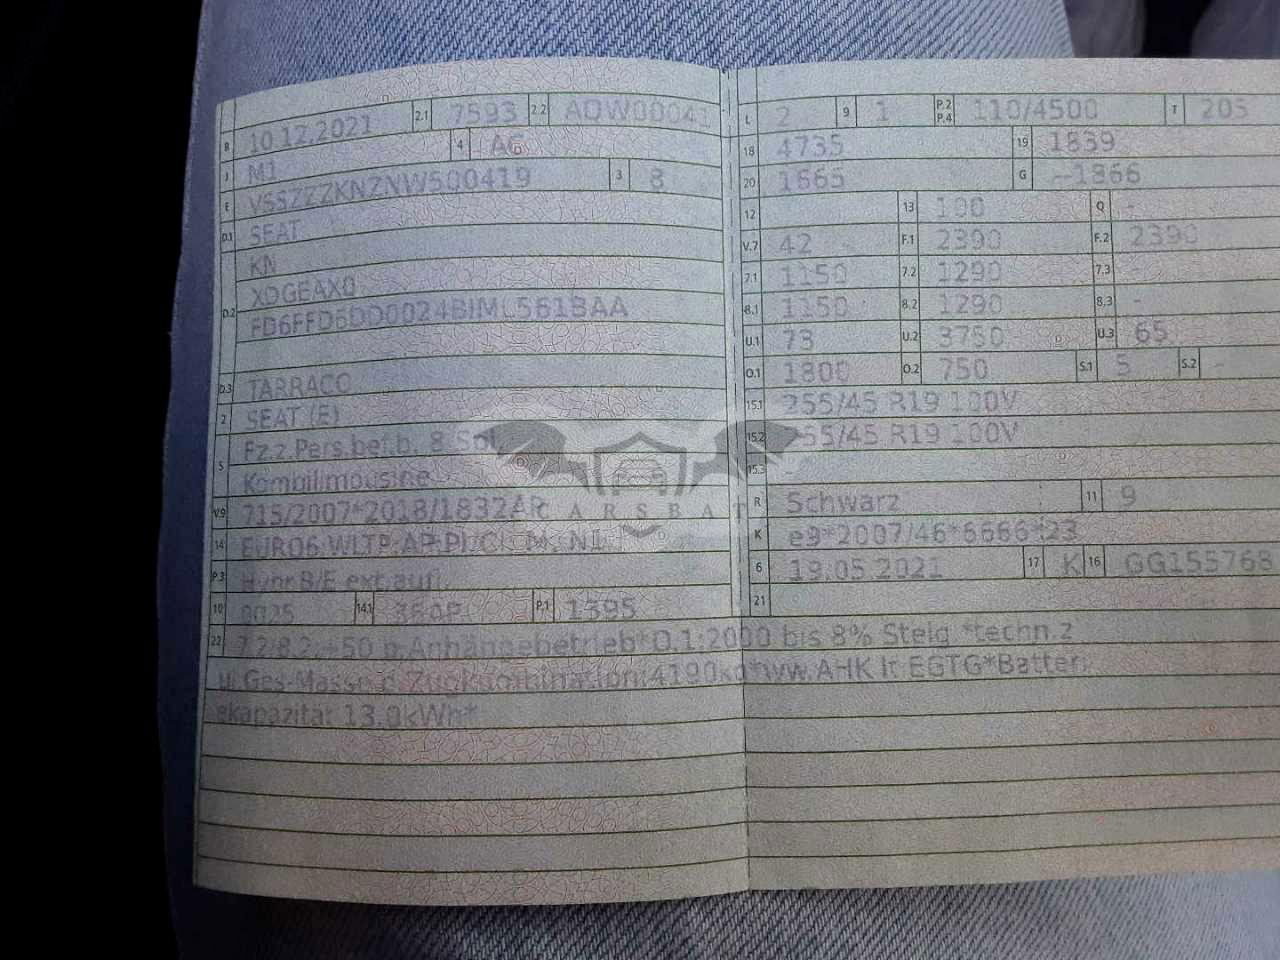 B 10.12.2021 2.1 7593 2.2 ADW00041
J M1 4 AG
E VSSZZZKNZNW500419 3 8
D.1 SEAT
D.2 KN
XDGEAX0
FD6FFD6DD0024BIML561BAA
D.3 TARRACO
2 SEAT (E)
5 Fz.z.Pers.bef.b. 8 Spl.
Kombilimousine
V.9 715/2007*2018/1832AP
14 EURO6 WLTP AP
P.3 Hybr.B/E ext.aufl.
10 0025 14.1 36AP P.1 1395
L 2 9 1 P.2 P.4 110/4500 T 205
18 4735 19 1839
20 1665 G --1866
12 13 100 Q -
V.7 42 F.1 2390 F.2 2390
7.1 1150 7.2 1290 7.3 -
8.1 1150 8.2 1290 8.3 -
U.1 73 U.2 3750 U.3 65
O.1 1800 O.2 750 S.1 5 S.2 -
15.1 255/45 R19 100V
15.2 255/45 R19 100V
15.3 -
R Schwarz 11 9
K e9*2007/46*6666*23
6 19.05.2021 17 K 16 GG155768
21
22 7.2/8.2:+50 b.Anhängebetrieb*O.1:2000 bis 8% Steig.*techn.z
ul.Ges-Masse d.Zugkombination:4190kg*ww.AHK lt.EGTG*Batteri
ekapazität 13,0kWh*
CARSBAT